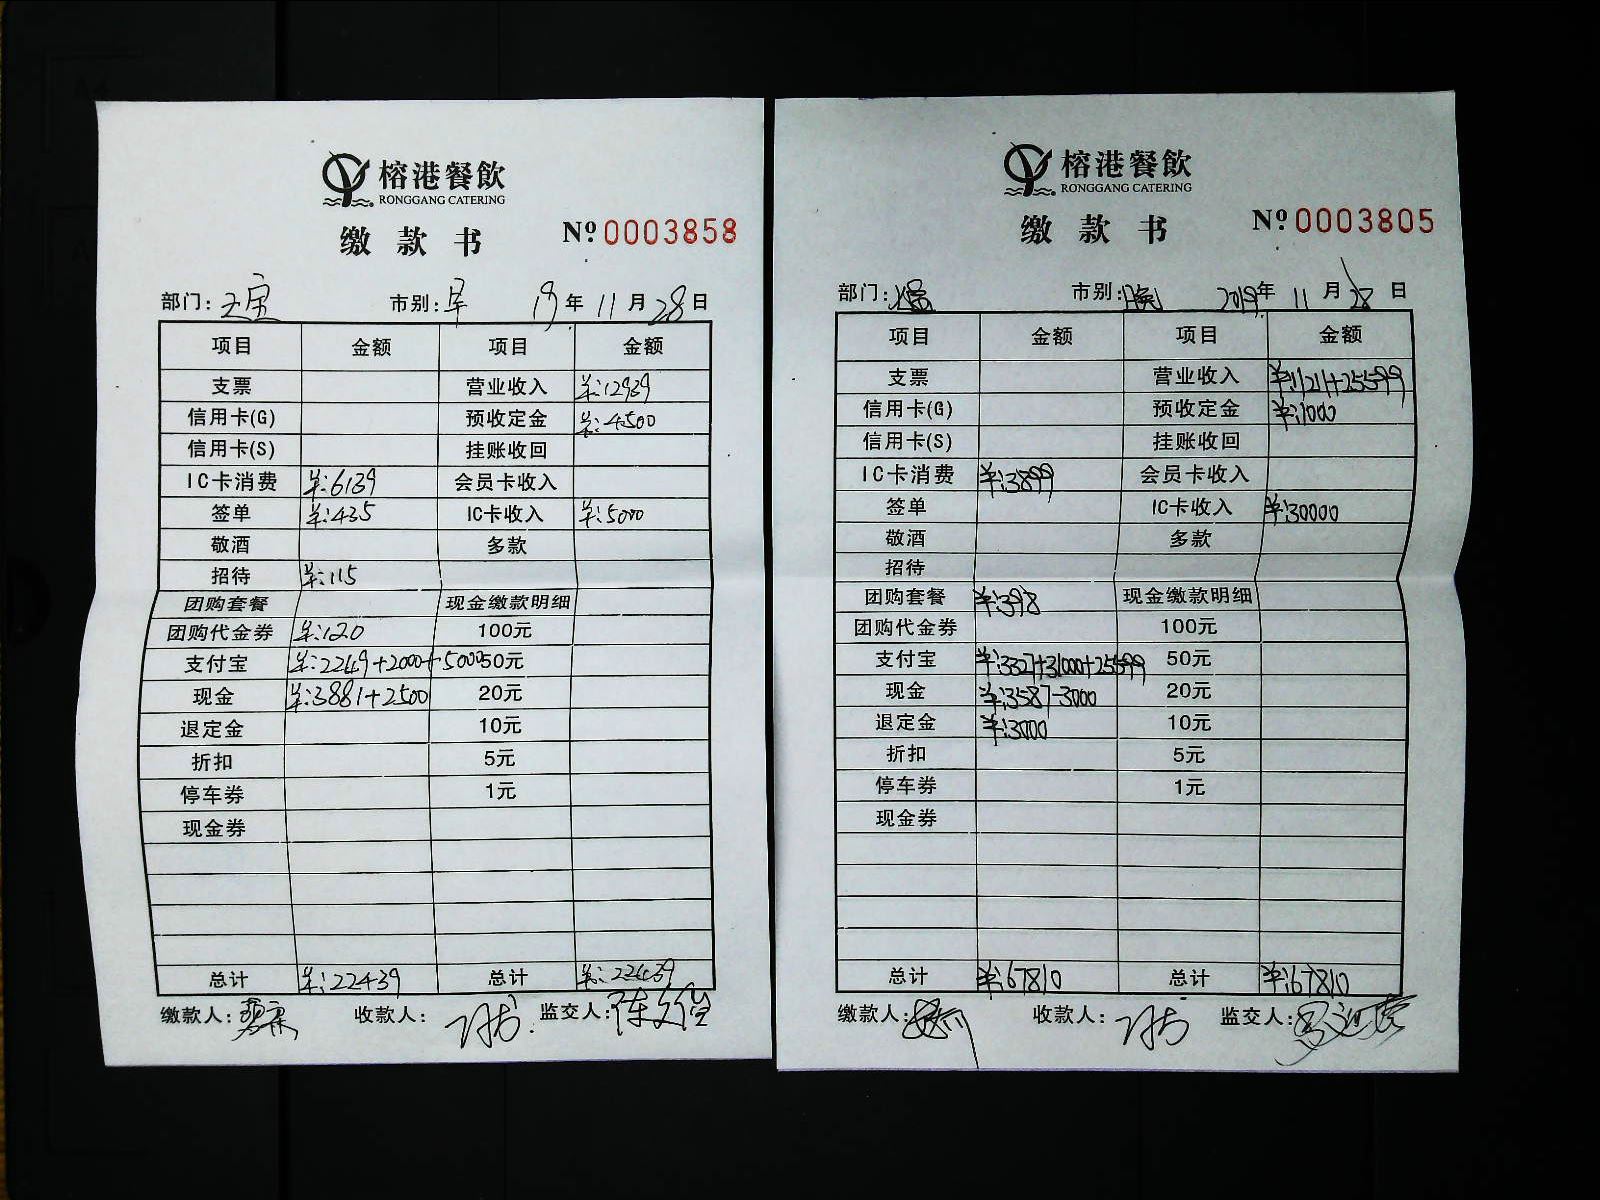 榕港餐飲
RONGGANG CATERING
缴款书
№ 0003858
部门: 市别: 早 19年11月28日
项目 金额 项目 金额
支票 营业收入 ¥:12939
信用卡(G) 预收定金 ¥:4500
信用卡(S) 挂账收回
IC卡消费 ¥:6139 会员卡收入
签单 ¥:435 IC卡收入 ¥:5000
敬酒 多款
招待 ¥:115
团购套餐 现金缴款明细
团购代金券 ¥:120 100元
支付宝 ¥:2249+2000+5000 50元
现金 ¥:3881+2500 20元
退定金 10元
折扣 5元
停车券 1元
现金券
总计 ¥:22439 总计 ¥:22439
缴款人: 收款人: 监交人:
榕港餐飲
RONGGANG CATERING
缴款书
№ 0003805
部门: 市别: 晚 2019年11月28日
项目 金额 项目 金额
支票 营业收入 ¥:11211+25599
信用卡(G) 预收定金 ¥:1000
信用卡(S) 挂账收回
IC卡消费 ¥:3899 会员卡收入
签单 IC卡收入 ¥:30000
敬酒 多款
招待
团购套餐 ¥:398 现金缴款明细
团购代金券 100元
支付宝 ¥:3327+31000+25599 50元
现金 ¥:3587-3000 20元
退定金 ¥:3000 10元
折扣 5元
停车券 1元
现金券
总计 ¥:67810 总计 ¥:67810
缴款人: 收款人: 监交人: